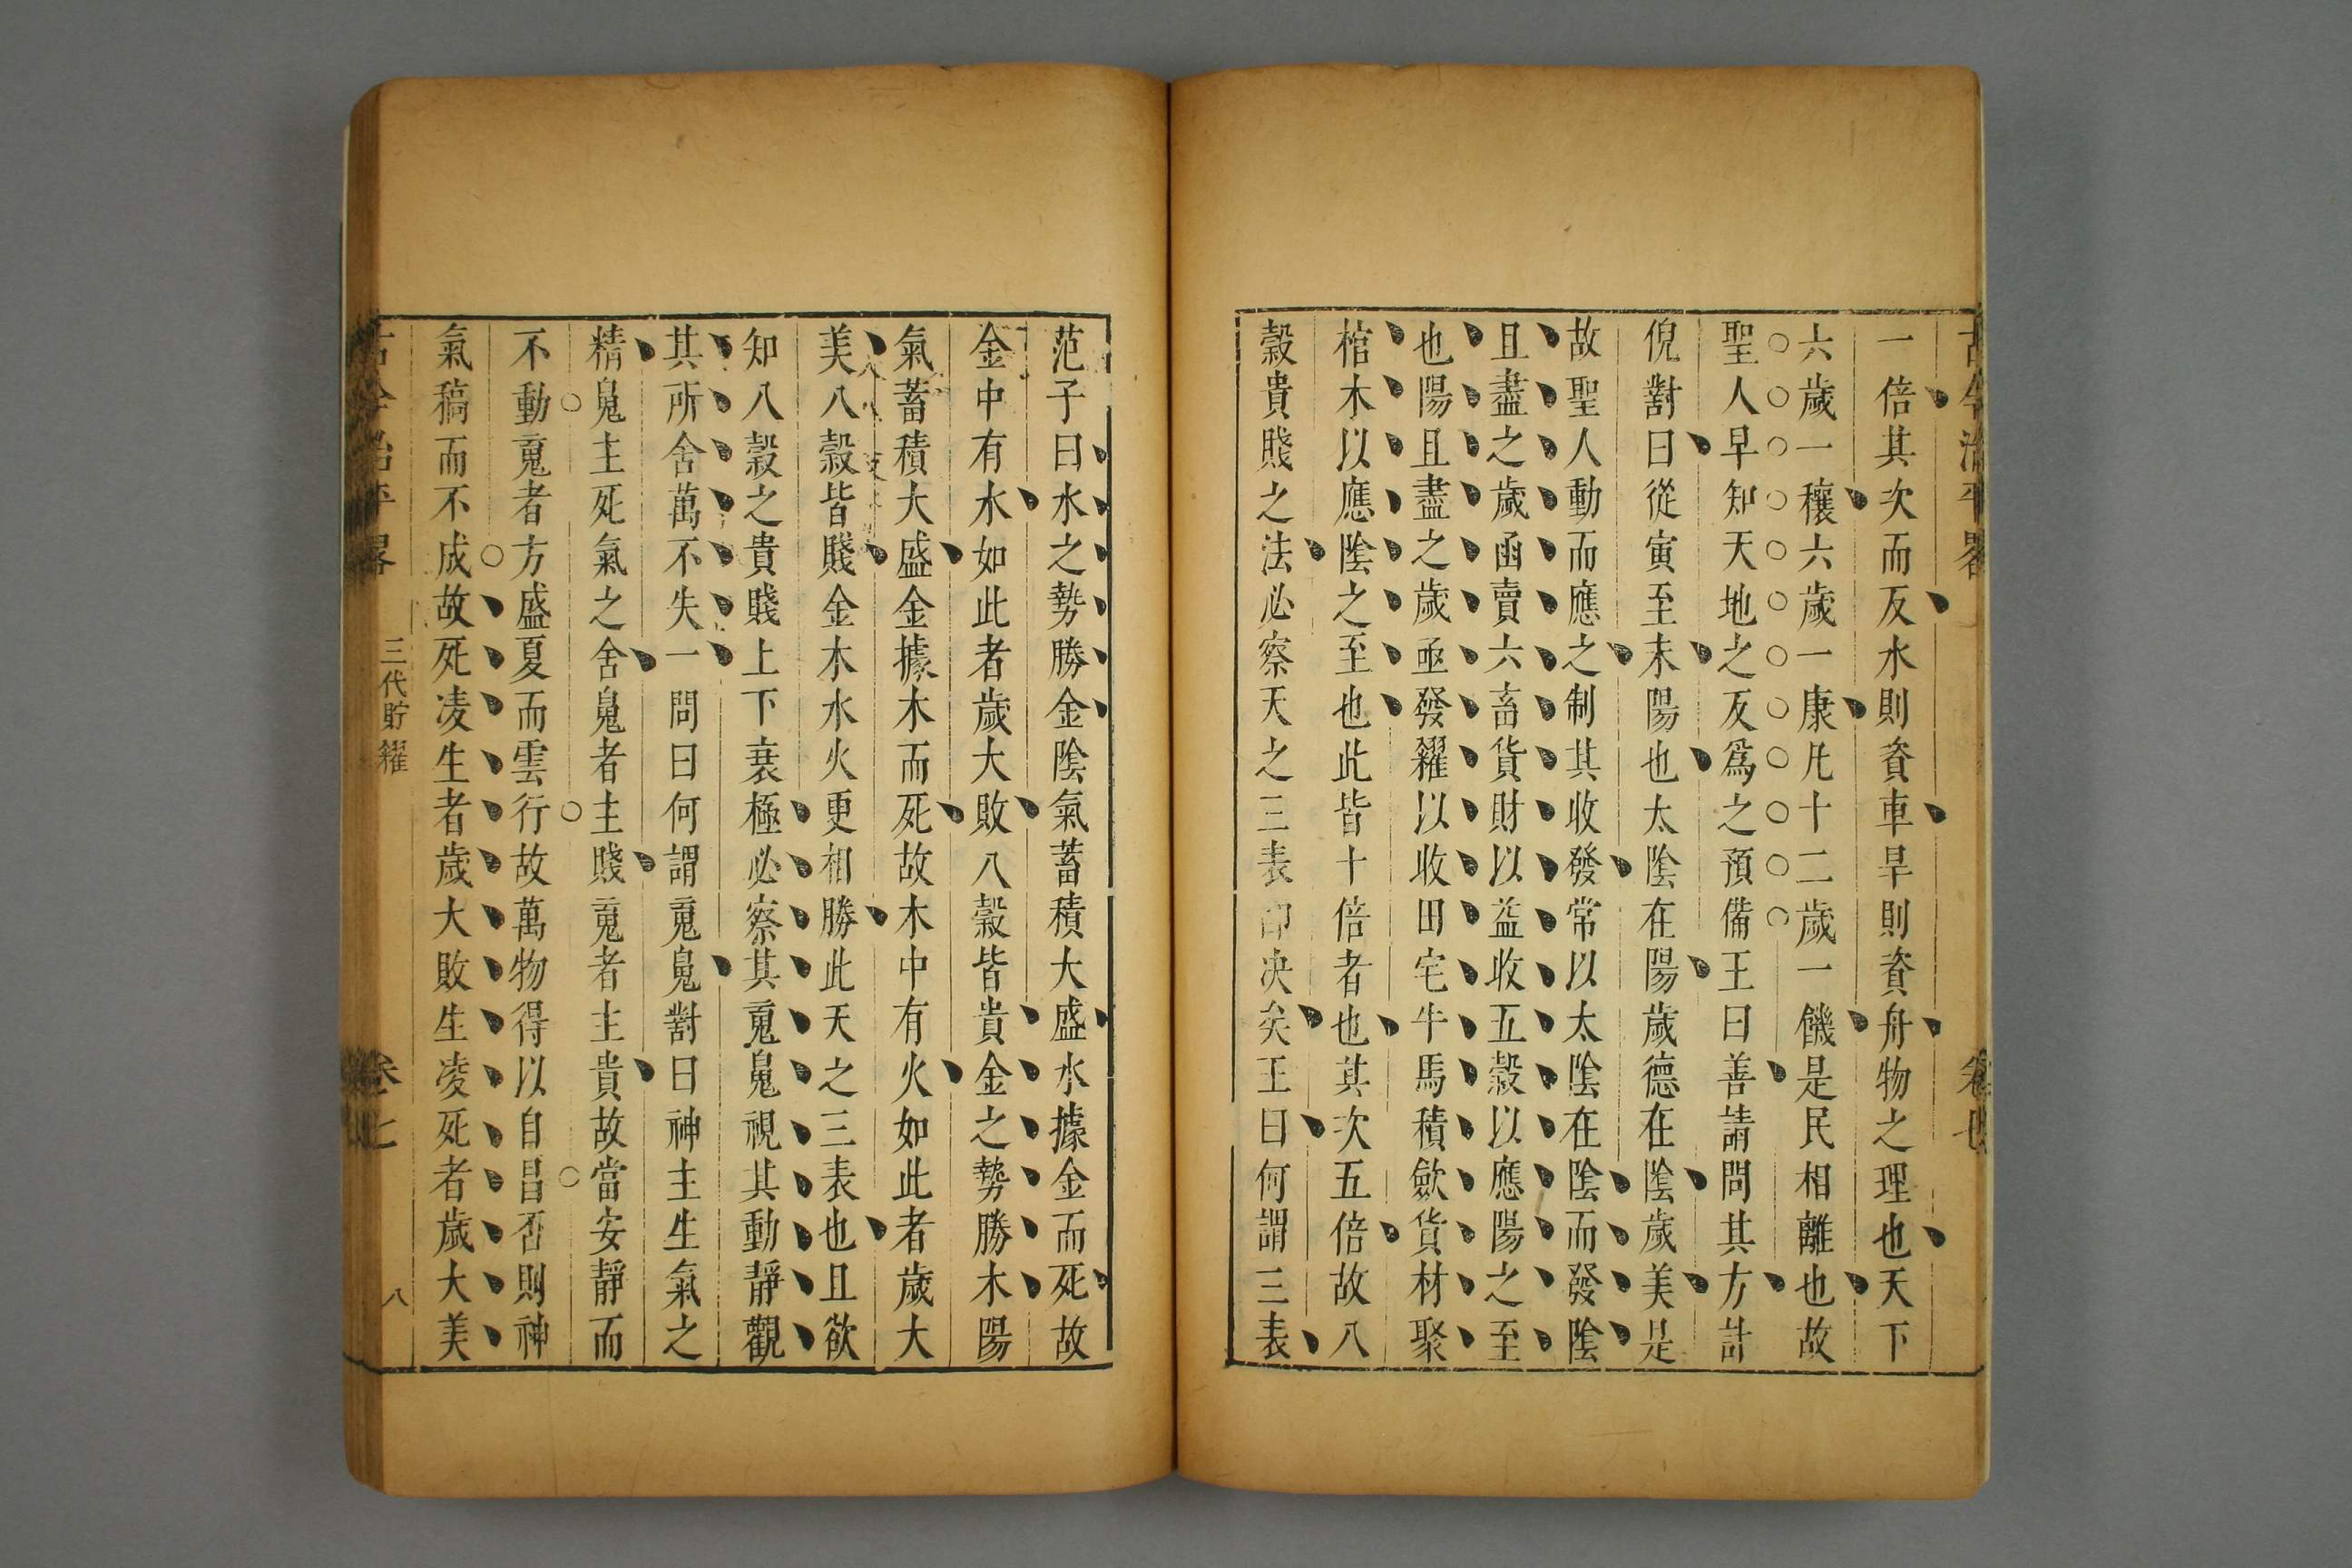 古今治平畧
卷七
一倍其次而反水則資車旱則資舟物之理也天下
六歲一穰六歲一康凡十二歲一饑是民相離也故
聖人早知天地之反爲之預備王曰善請問其方計
倪對曰從寅至未陽也太陰在陽歲德在陰歲美是
故聖人動而應之制其收發常以太陰在陰而發陰
且盡之歲亟賣六畜貨財以益收五穀以應陽之至
也陽且盡之歲亟發糴以收田宅牛馬積歛貨材聚
棺木以應陰之至也此皆十倍者也其次五倍故八
穀貴賤之法必察天之三表卽决矣王曰何謂三表
范子曰水之勢勝金陰氣蓄積大盛水據金而死故
金中有水如此者歲大敗八穀皆貴金之勢勝木陽
氣蓄積大盛金據木而死故木中有火如此者歲大
美八穀皆賤金木水火更相勝此天之三表也且欲
知八穀之貴賤上下衰極必察其䰟魄視其動靜觀
其所舍萬不失一問曰何謂䰟魄對曰神主生氣之
精魄主死氣之舍魄者主賤䰟者主貴故當安靜而
不動䰟者方盛夏而雲行故萬物得以自昌否則神
氣稿而不成故死凌生者歲大敗生凌死者歲大美
古今治平畧
三代貯糴
卷七
八